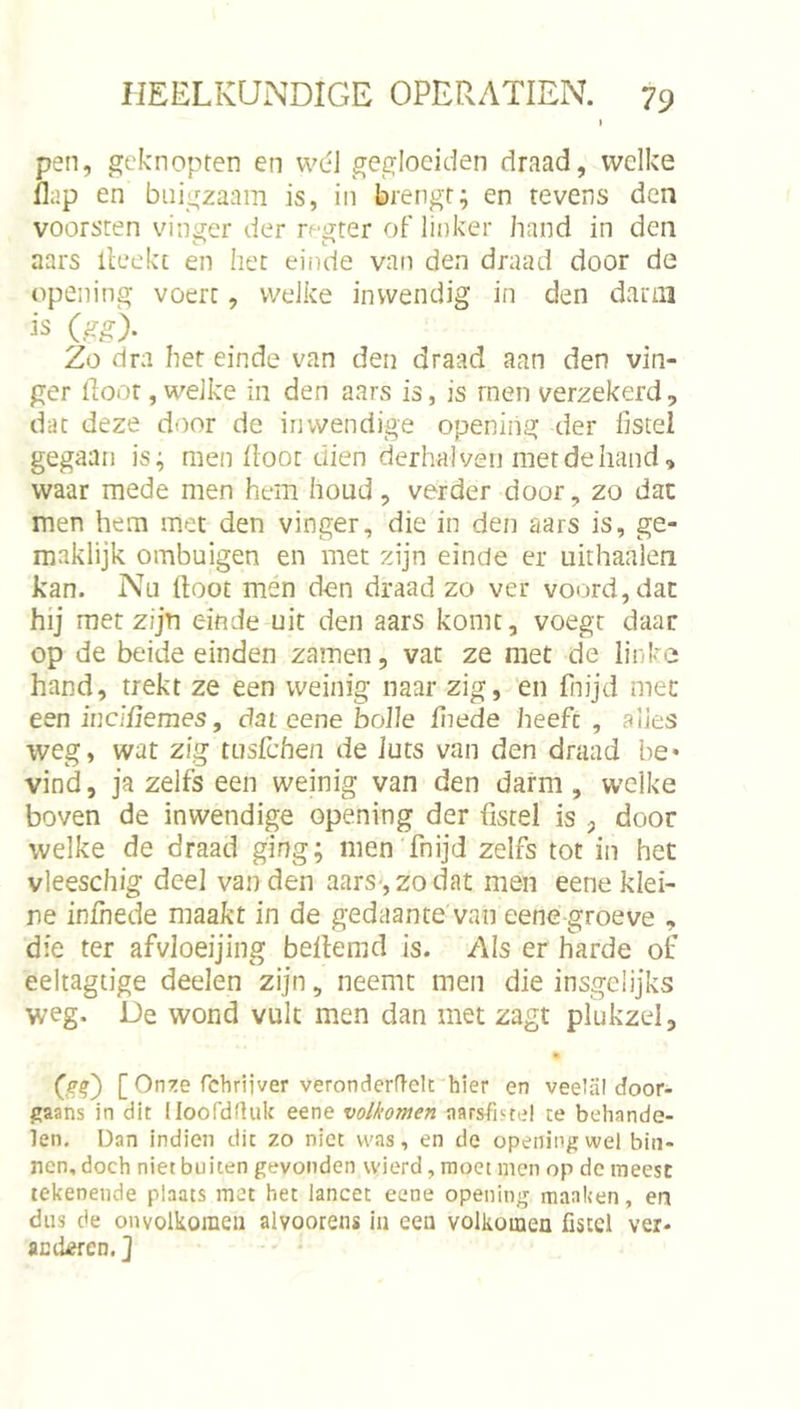 HEELKUNDIGE OPERATIEN. 79
pen, geknopten en wél gegloeiden draad, welke
ſlap en buigzaam is, in brengt; en tevens den
voorsten vinger der regter of linker hand in den
aars ſteekt en het einde van den draad door de
opening voert, welke inwendig in den darm
is (gg).
Zo dra het einde van den draad aan den vin-
ger ſtoot, welke in den aars is, is men verzekerd,
dat deze door de inwendige opening der fistel
gegaan is; men ſtoot dien derhalven met de hand,
waar mede men hem houd, verder door, zo dat
men hem met den vinger, die in den aars is, ge-
maklijk ombuigen en met zijn einde er uithaalen
kan. Nu ſtoot men den draad zo ver voord, dat
hij met zijn einde uit den aars komt, voegt daar
op de beide einden zamen, vat ze met de linke
hand, trekt ze een weinig naar zig, en ſnijd met
een inciſiemes, dat eene bolle ſnede heeft, alles
weg, wat zig tusſchen de luts van den draad be-
vind, ja zelfs een weinig van den darm, welke
boven de inwendige opening der fistel is, door
welke de draad ging; men ſnijd zelfs tot in het
vleeschig deel van den aars, zo dat men eene klei-
ne inſnede maakt in de gedaante van eene groeve,
die ter afvloeijing beſtemd is. Als er harde of
eeltagtige deelen zijn, neemt men die insgelijks
weg. De wond vult men dan met zagt plukzel,
(gg) [Onze ſchrijver veronderſtelt hier en veelál door-
gaans in dit Hoofdſtuk eene volkomen aarsfistel te behande-
len. Dan indien dit zo niet was, en de opening wel bin-
nen, doch niet buiten gevonden wierd, moet men op de meest
tekenende plaats met het lancet eene opening maaken, en
dus de onvolkomen alvoorens in een volkomen fistel ver-
anderen.]